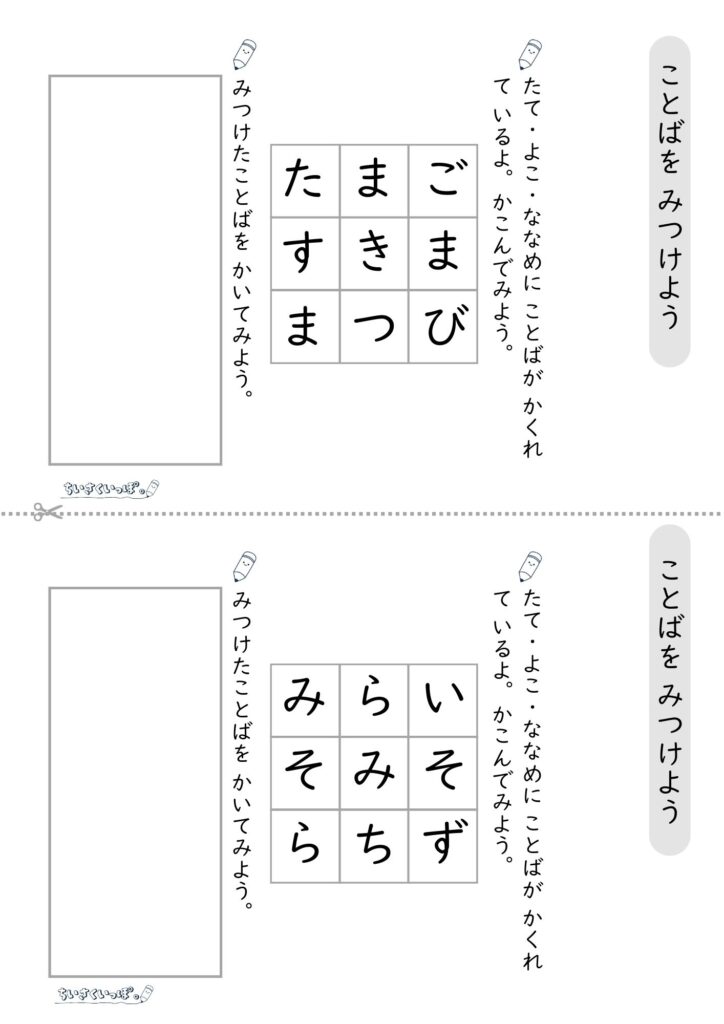 ことばを みつけよう
たて・よこ・ななめに ことばが かくれ
て いるよ。 かこんでみよう。
た ま ご
す き ま
ま つ び
みつけたことばを かいてみよう。
ちいさくいっぽ。
ことばを みつけよう
たて・よこ・ななめに ことばが かくれ
て いるよ。 かこんでみよう。
み ら い
そ み そ
ら ち ず
みつけたことばを かいてみよう。
ちいさくいっぽ。